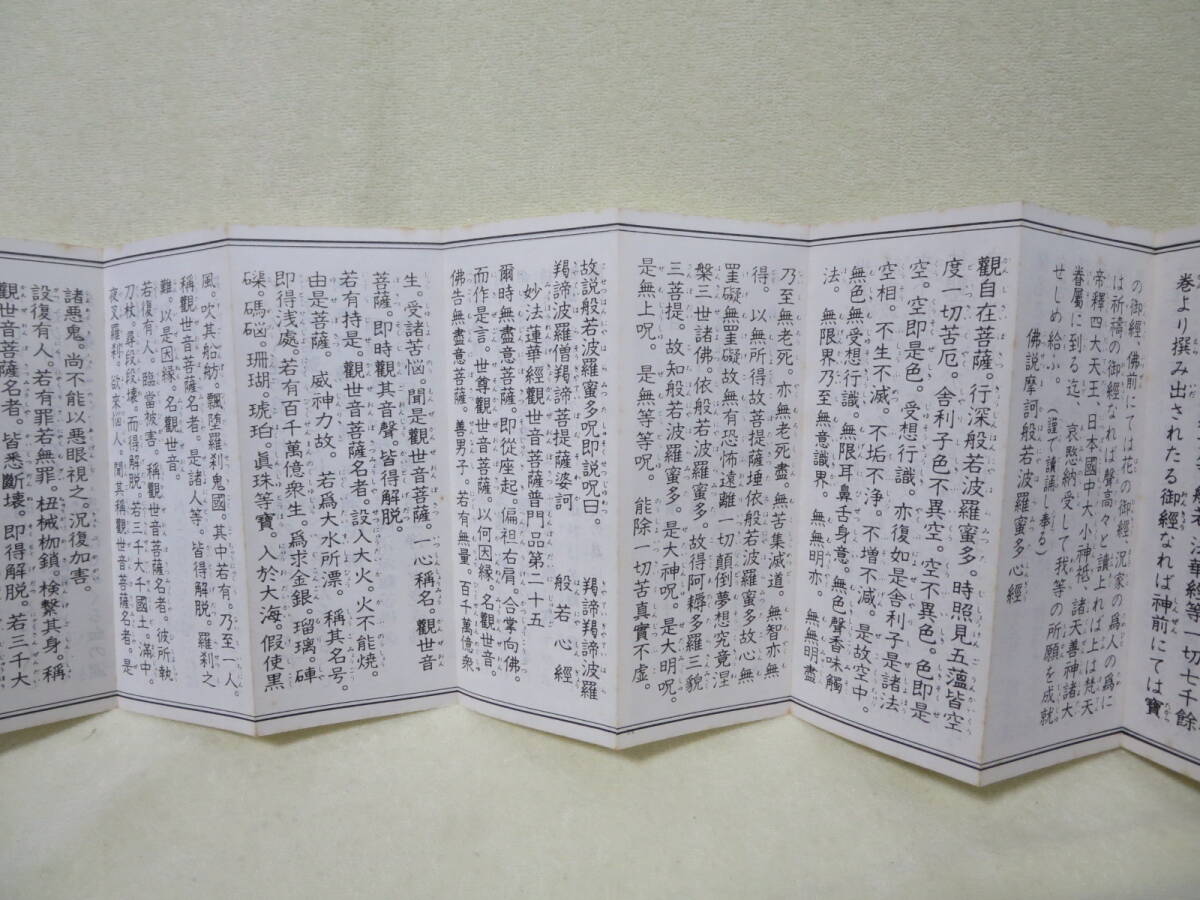 巻より撰み出されたる御經なれば神前にては寶
の御經、佛前にては花の御經、況家の爲人の爲に
は祈禱の御經なれば聲高々と讀上れば上は梵天
帝釋四大天王、日本國中大小神祗、諸天善神諸大
眷屬に到る迄、哀愍納受して我等の所願を成就
せしめ給ふ。（謹で讀誦し奉る）
佛説摩訶般若波羅蜜多心經
觀自在菩薩。行深般若波羅蜜多。時照見五薀皆空
度一切苦厄。舎利子色不異空。空不異色。色即是
空。空即是色。受想行識。亦復如是舎利子是諸法
空相。不生不滅。不垢不浄。不增不減。是故空中。
無色無受想行識。無限耳鼻舌身意。無色聲香味觸
法。無限界乃至無意識界。無無明亦。無無明盡
乃至無老死。亦無老死盡。無苦集滅道。無智亦無
得。以無所得故菩提薩埵依般若波羅蜜多故心無
罣礙無罣礙故無有恐怖遠離一切顛倒夢想究竟涅
槃三世諸佛。依般若波羅蜜多。故得阿耨多羅三貌
三菩提。故知般若波羅蜜多。是大神呪。是大明呪。
是無上呪。是無等等呪。能除一切苦真實不虚。
故説般若波羅蜜多呪即説呪曰。羯諦羯諦波羅
羯諦波羅僧羯諦菩提薩婆訶　般若心經
妙法蓮華經觀世音菩薩普門品第二十五
爾時無盡意菩薩。即從座起。偏袒右肩。合掌向佛。
而作是言。世尊觀世音菩薩。以何因縁。名觀世音。
佛告無盡意菩薩。善男子。若有無量。百千萬億衆
生。受諸苦悩。聞是觀世音菩薩。一心稱名。觀世音
菩薩。即時觀其音聲。皆得解脱。
若有持是。觀世音菩薩名者。設入大火。火不能焼。
由是菩薩。威神力故。若爲大水所漂。稱其名号。
即得浅處。若有百千萬億衆生。爲求金銀。瑠璃。硨
磲。碼碯。珊瑚。琥珀。眞珠等寶。入於大海。假使黒
風。吹其船舫。飄堕羅刹鬼國。其中若有。乃至一人。
稱觀世音菩薩名者。是諸人等。皆得解脱。羅刹之
難。以是因縁。名觀世音。
若復有人。臨當被害。稱觀世音菩薩名者。彼所執
刀杖。尋段段壊。而得解脱。若三千大千國土。滿中。
夜叉羅刹。欲來悩人。聞其稱觀世音菩薩名者。是
諸惡鬼。尚不能以惡眼視之。況復加害。
設復有人。若有罪若無罪。杻械枷鎖。檢繋其身。稱
觀世音菩薩名者。皆悉斷壊。即得解脱。若三千大